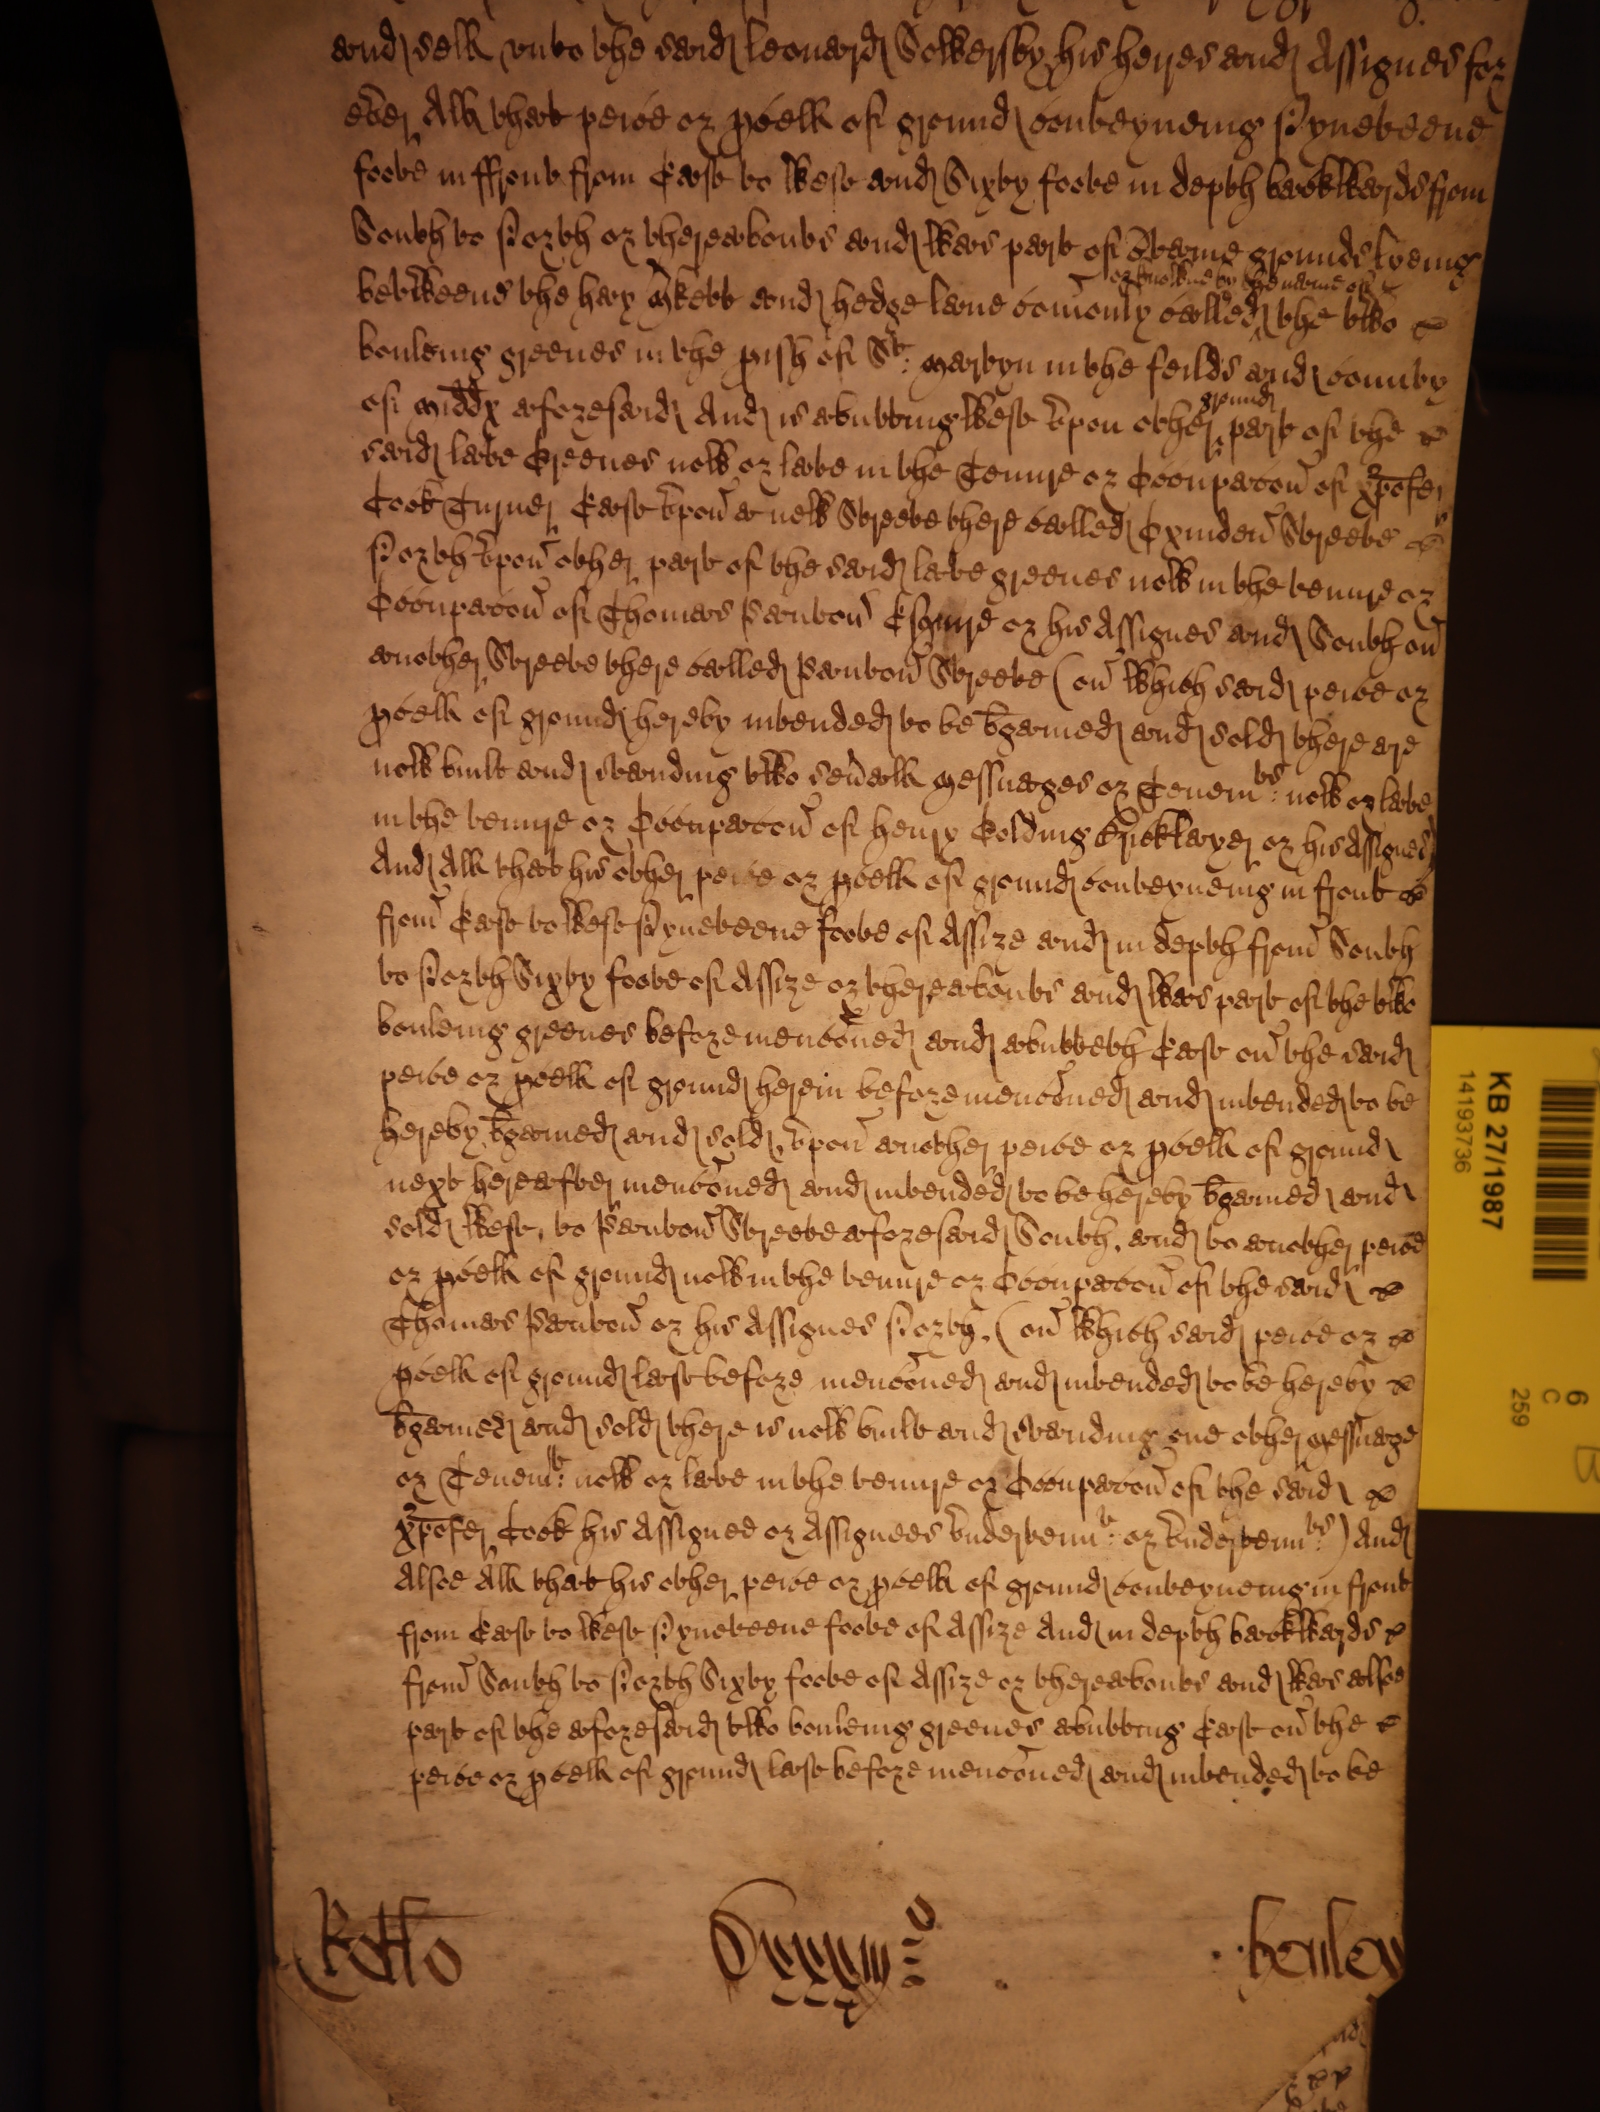 and sell unto the said Leonard Sowersby his heires and Assignes for
ever All that peice or pcell of ground conteyneing Nyneteene
foote in ffront from East to West and Sixty foote in depth backwards from
South to North or thereabouts and was part of grounds lyeing
or knowne by the name of
betweene the hay Mkett and hedge lane comonly called the two
bouleing greenes in the pish of St: Martyn in the feilds and County
of Midd'x aforesaid And is abutting West upon other ground part of the
said late Greenes now or late in the Tenure or Occupacon of Xpofer
Cook Turner East upon a new Streete there called Oxinden Streete
North upon other part of the said late greenes now in the tenure or
Occupacon of Thomas Panton Esquire or his Assignes and South on
another Streete there called Panton Streete (on which said peice or
pcell of ground hereby intended to be bgained and sold there are
now built and standing two sevall Messuages or Tenemts: now or late
in the tenure or Occupacon of henry Bricklayer or his Assignes)
And All that his other peice or pcell of ground conteyneing in front
from East to West Nyneteene foote of Assize and in depth from South
to North Sixty foote of Assize or thereabouts and was part of the two
bouleing greenes before menconed and abutteth East on the said
peice or pcell of ground herein before menconed and intended to be
hereby bgained and sold, upon another peice or pcell of ground
next hereafter menconed and intended to be hereby bgained and
sold West, to Panton Streete aforesaid South, and to another peice
or pcell of ground now in the tenure or Occupacon of the said
Thomas Panton or his Assignes North, (on which said peice or
pcell of ground last before menconed and intended to be hereby
bgained and sold there is now built and standing one other Messuage
or Tenemt: now or late in the tenure or Occupacon of the said
Xpofer Cook his Assignee or Assignees undertennt: or undertennts:) And
Alsoe All that his other peice or pcell of ground conteyneing in front
from East to West Nyneteene foote of Assize And in depth backwards
from South to North Sixty foote of Assize or thereabouts and was alsoe
part of the aforesaid two bouleing greenes abutting East on the
peice or pcell of ground last before menconed and intended to be
Rotlo
henley
KB 27/1987
14193736
6
C
259